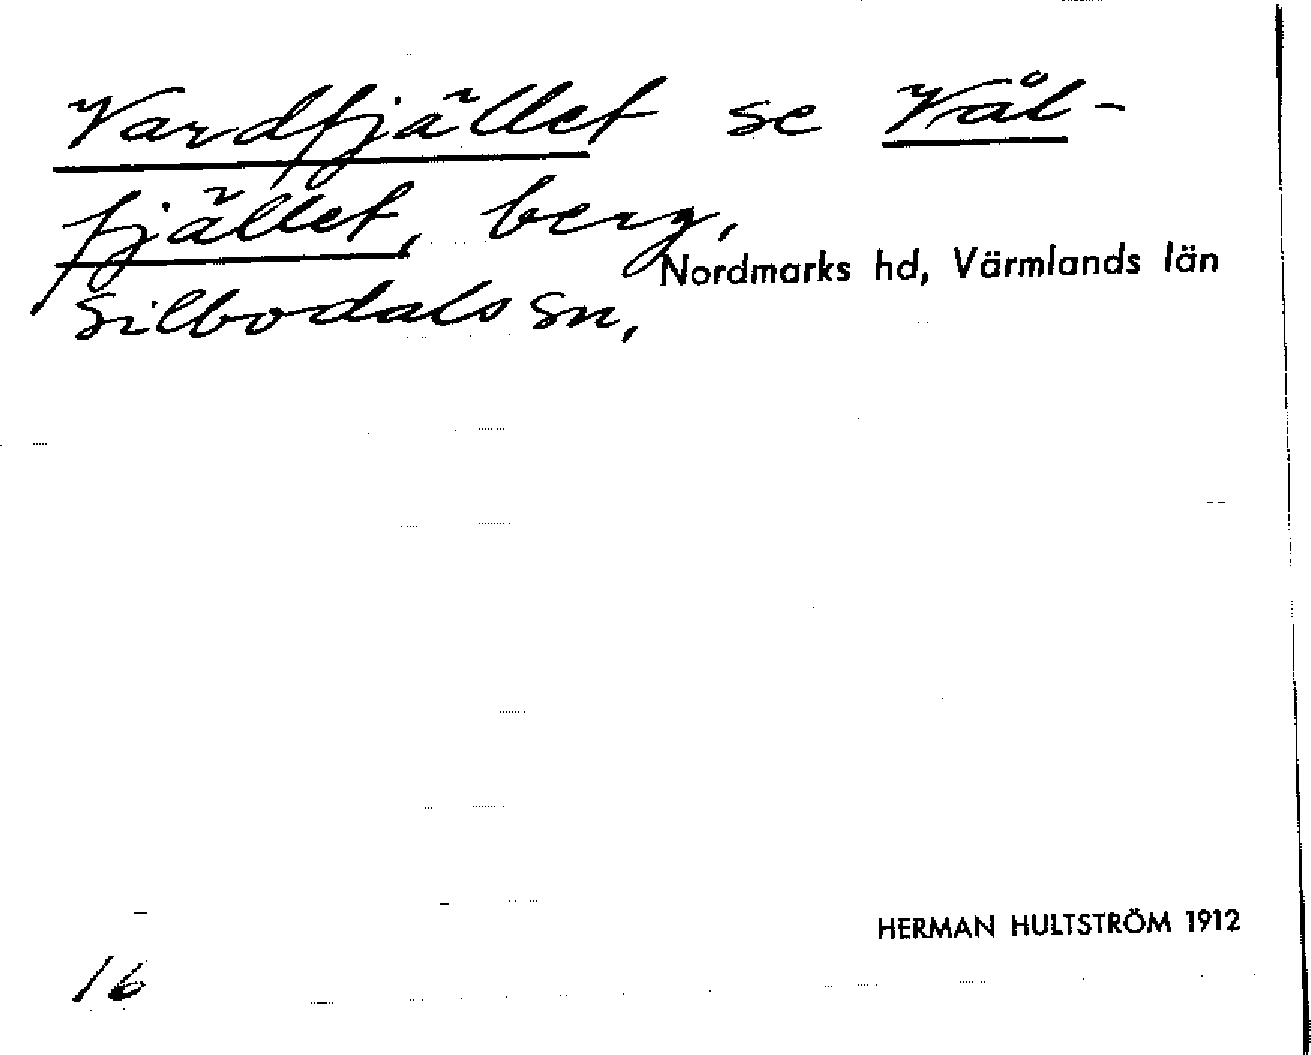 Vardfjället se Vål-
fjället, berg,
Nordmarks hd, Värmlands län
Silbodals sn,
HERMAN HULTSTRÖM 1912
16